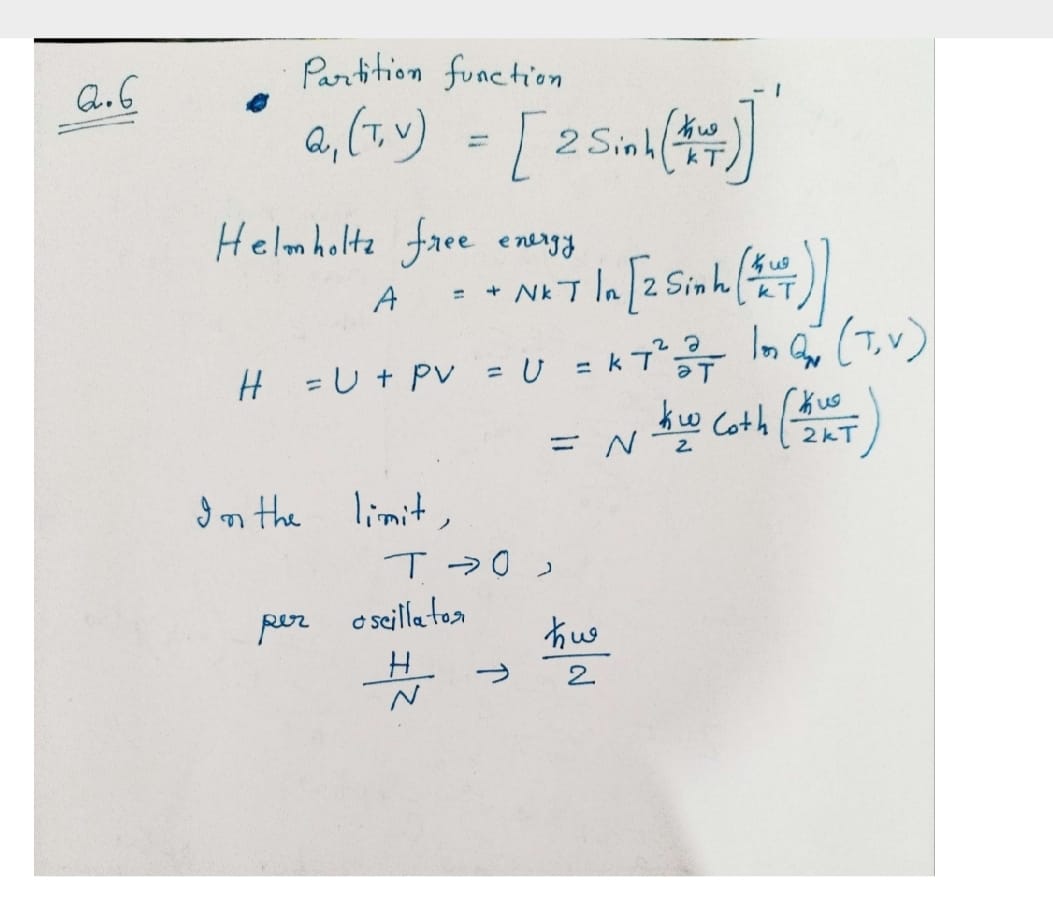 Q.6
Partition function
Q₁(T,V) = [2 Sinh(ħω/kT)]⁻¹
Helmholtz free energy
A = + NkT ln [2 Sinh(ħω/kT)]
H = U + PV = U = kT² ∂/∂T ln Q_N (T,V)
= N ħω/2 Coth (ħω/2kT)
In the limit,
T → 0,
per oscillator
H/N → ħω/2